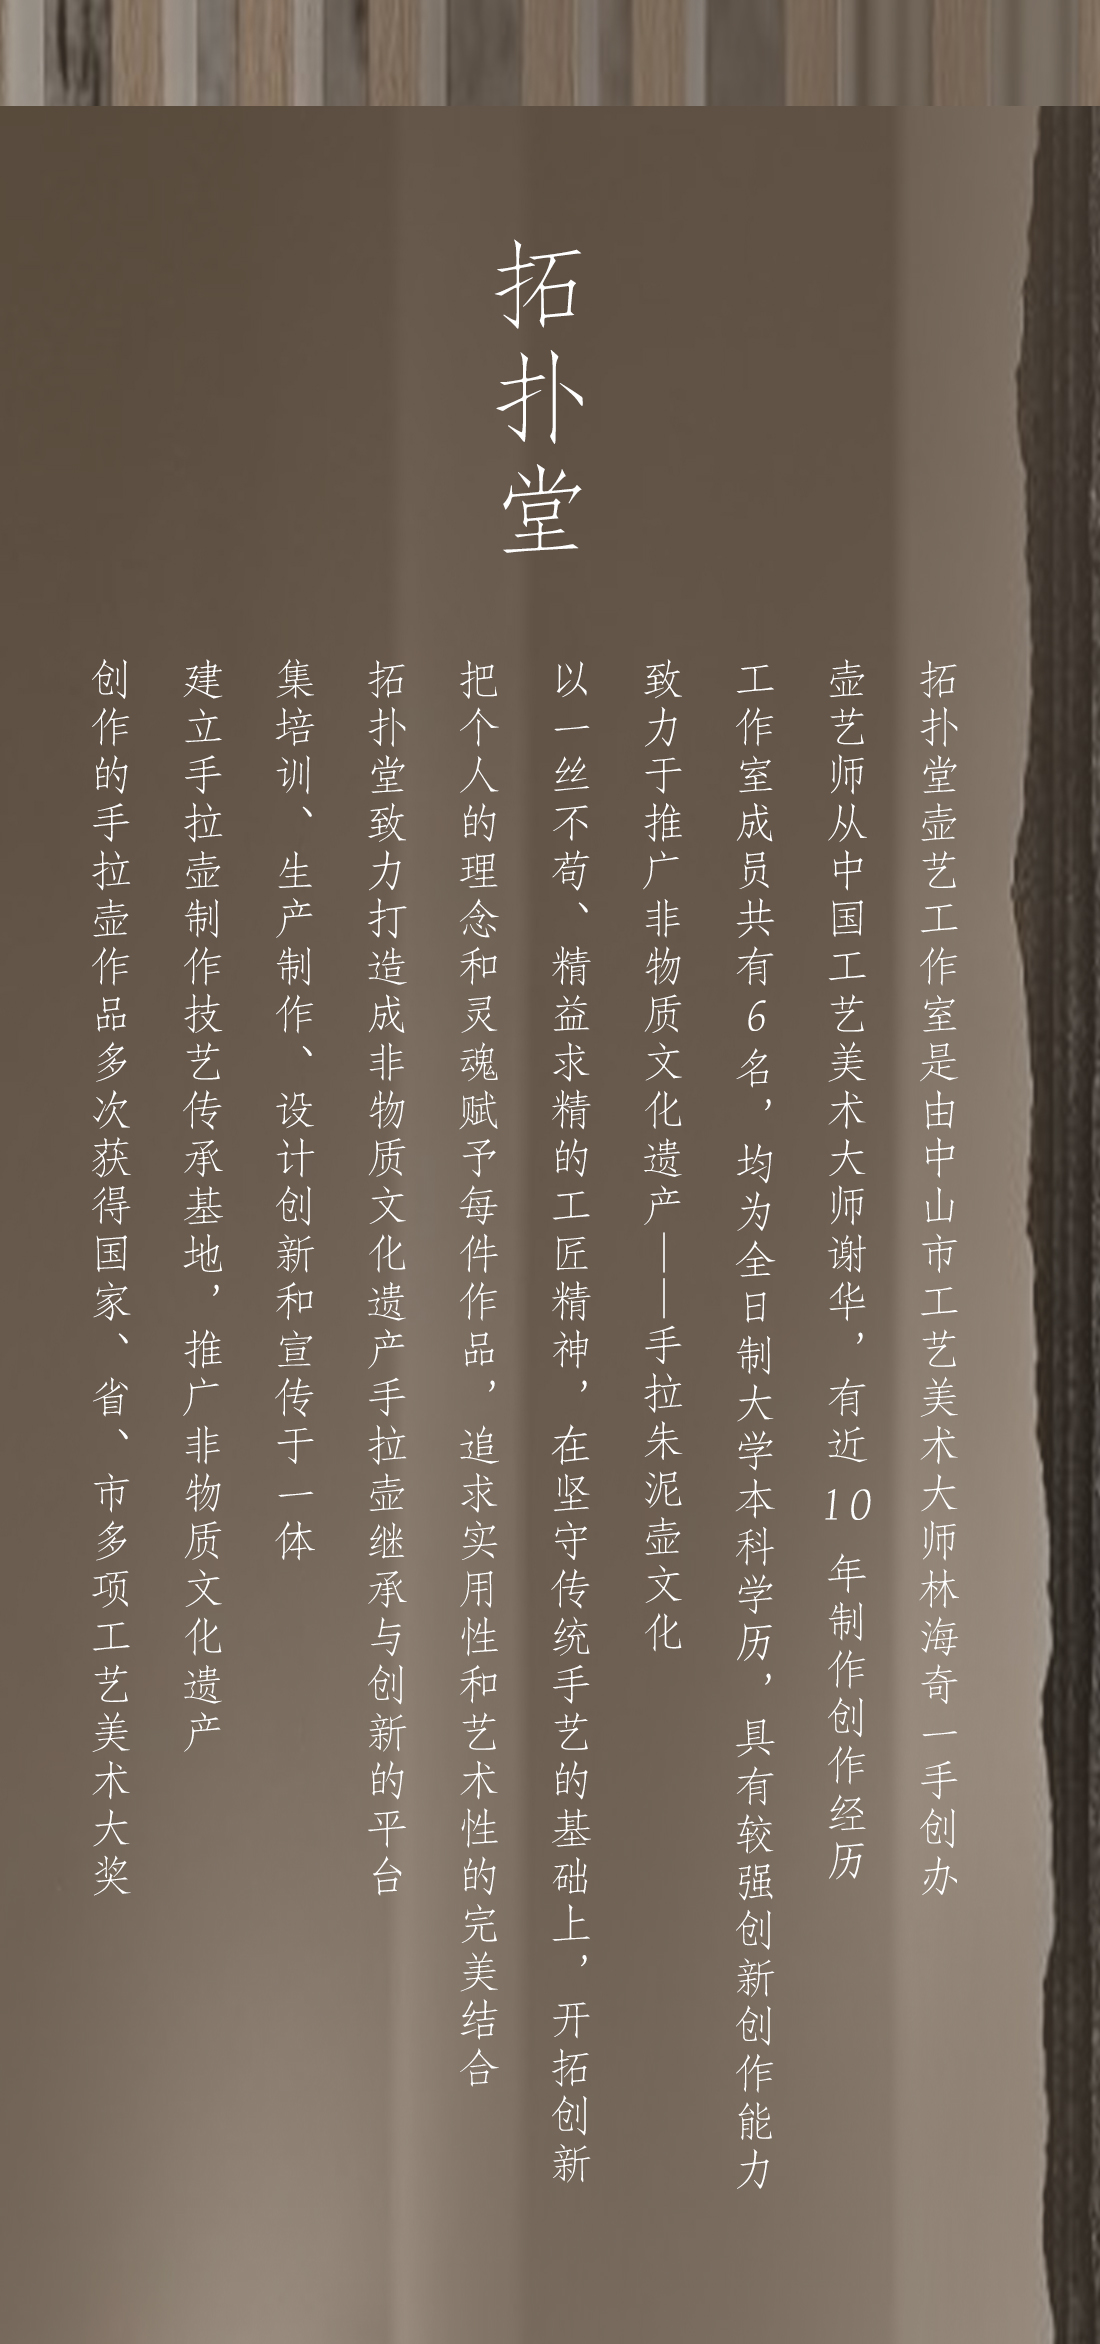 拓扑堂
拓扑堂壶艺工作室是由中山市工艺美术大师林海奇一手创办
壶艺师从中国工艺美术大师谢华，有近10年制作创作经历
工作室成员共有6名，均为全日制大学本科学历，具有较强创新创作能力
致力于推广非物质文化遗产——手拉朱泥壶文化
以一丝不苟、精益求精的工匠精神，在坚守传统手艺的基础上，开拓创新
把个人的理念和灵魂赋予每件作品，追求实用性和艺术性的完美结合
拓扑堂致力打造成非物质文化遗产手拉壶继承与创新的平台
集培训、生产制作、设计创新和宣传于一体
建立手拉壶制作技艺传承基地，推广非物质文化遗产
创作的手拉壶作品多次获得国家、省、市多项工艺美术大奖